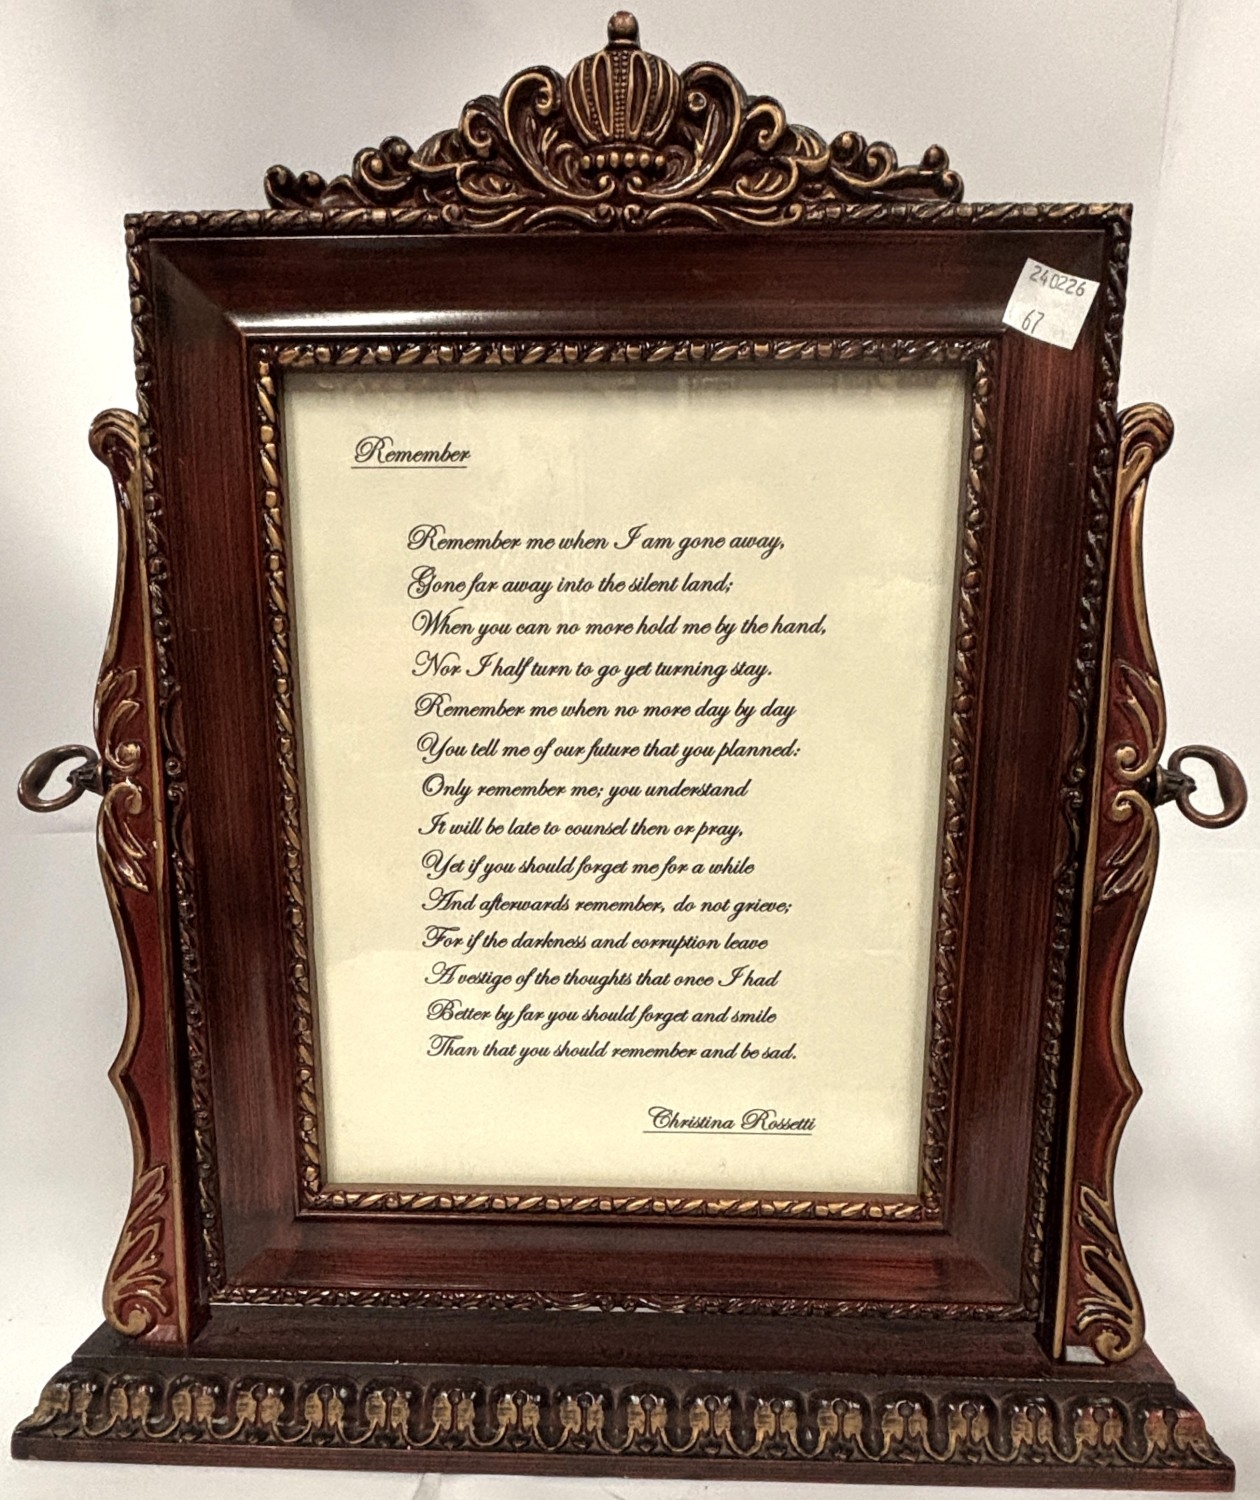 240226
67
Remember
Remember me when I am gone away,
Gone far away into the silent land;
When you can no more hold me by the hand,
Nor I half turn to go yet turning stay.
Remember me when no more day by day
You tell me of our future that you planned:
Only remember me; you understand
It will be late to counsel then or pray,
Yet if you should forget me for a while
And afterwards remember, do not grieve;
For if the darkness and corruption leave
A vestige of the thoughts that once I had
Better by far you should forget and smile
Than that you should remember and be sad.
Christina Rossetti